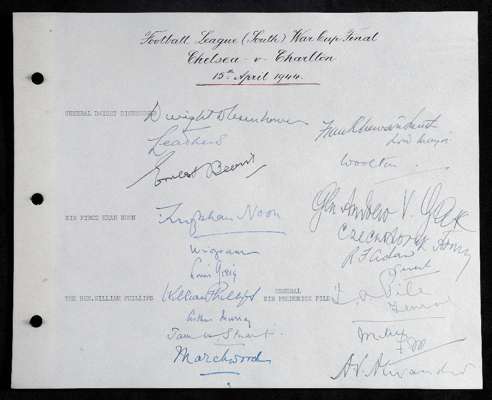 Football League (South) War Cup Final
Chelsea - v - Charlton
15th April 1944.
GENERAL DWIGHT EISENHOWER
Dwight D Eisenhower
Leathers
Ernest Bevin
Lord Mayor
Woolton
SIR FIROZ KHAN NOON
Firozkhan Noon
Gen
V.
Czechoslovak Army
Wigram
Louis Greig
R F Adam
THE HON. WILLIAM PHILLIPS
William Phillips
GENERAL
SIR FREDERICK PILE
F A Pile
General
Arthur Murray
James Stuart.
Marchwood
A V Alexander